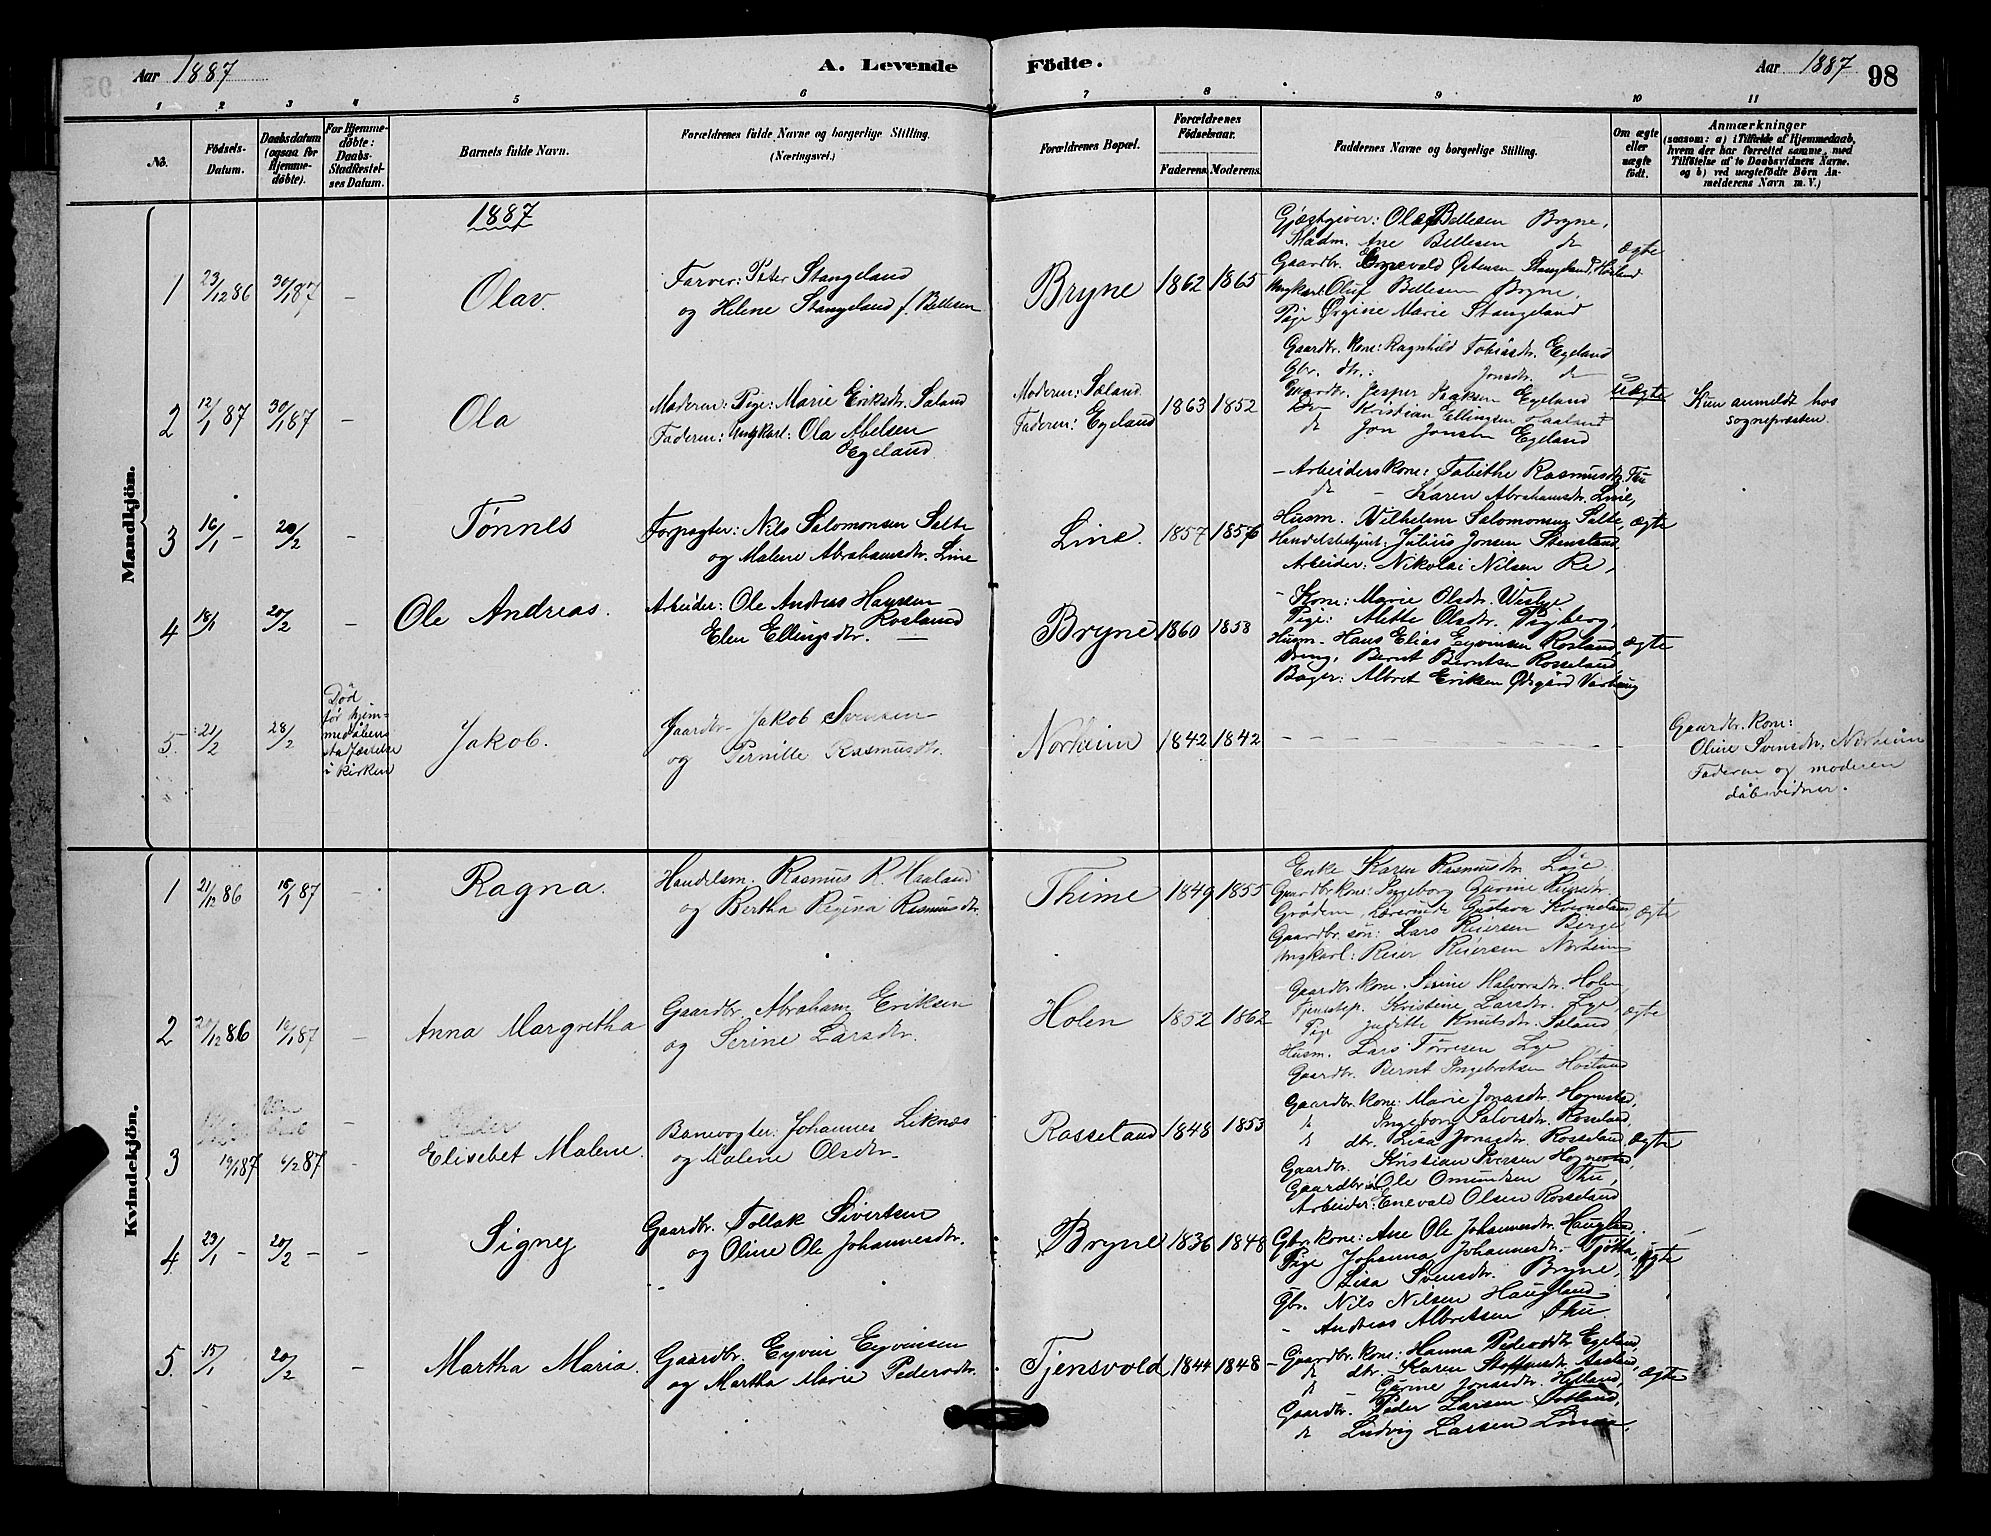 Aar 1887
A. Levende Födte.
Aar 1887
98
1 2 3 4 5 6 7 8 9 10 11
No.
Födsels-Datum.
Daabsdatum (ogsaa for Hjemme-döbte).
For Hjemme-döbte: Daabs-Stadfæstel-ses Datum.
Barnets fulde Navn.
Forældrenes fulde Navne og borgerlige Stilling.
(Næringsvei.)
Forældrenes Bopæl.
Forældrenes Födselsaar.
Faderens. Moderens.
Faddernes Navne og borgerlige Stilling.
Om ægte eller uægte födt.
Anmærkninger
(saasom: a) i Tilfælde af Hjemmedaab, hvem der har forrettet samme, med Tilføielse af to Daabsvidners Navne. og b) ved uægtefödte Börn Anmelderens Navn m. V.)
Mandkjön.
1887
1 23/12 86 30/1 87 - Olav.
Farver: Peter Stangeland
og Helene Stangeland f. Bellesen
Bryne 1862 1865
Gjæstgiver: Olaf Bellesen Bryne,
Madm. Ane Bellesen de
Gaardbr. Enevald Østensen Stangeland,
Ungkarl Oluf Bellesen Bryne,
Pige Ørgine Marie Stangeland
ægte
2 12/1 87 30/1 87 - Ola
Moderen: Pige: Marie Eriksdtr. Saland
Faderen: Ungkarl: Ola Abelsen
Egeland
Moderen: Saland
Faderen: Egeland
1863 1852
Gaardbr. kone: Ragnhild Tobiasdtr. Egeland
Gbr. dtr.: Jonsdtr. de
Gaardbr. Jesper Isaksen Egeland
Do Kristian Ellingsen
de Jon Jonsen Egeland
Uægte
Kun anmeldt hos
sognepræsten.
3 16/1 - 20/2 - Tønnes
Forpagter: Nils Salomonsen Salte
og Malene Abrahamsdtr. Line
Line. 1857 1856
- Arbeiders kone: Tabithe Rasmusdtr. Tu
de - Karen Abrahamsdtr. Line,
Husm. Vilhelm Salomonsen Salte,
Handelsbetjent: Julius Jonsen Stensland,
Arbeider: Nikolai Nilsen Re,
ægte
4 18/1 20/2 - Ole Andreas.
Arbeider: Ole Andreas Hansen
Rosland
Elen Ellingsdtr. -
Bryne 1860 1858
- Kone: Marie Olsdtr.
Pige: Alette Olsdtr.
Husm. Hans Elias Eyvinsen Rosland,
Dreng, Bernt Berntsen Rosseland,
Bager: Albret Eriksen Ødsgård Varhaug
ægte
5. 21/2 28/2
Død
før hjem-
medåbens
stadfæstelse
i kirken
Jakob.
Gaardbr. Jakob Svensen
og Pernille Rasmusdtr.
Norheim 1842 1842
Gaardbr. kone:
Oline Svensdtr. Norheim
Faderen og moderen
dåbsvidner.
Kvindekjön.
1 21/12 86 16/1 87 - Ragna.
Handelsm. Rasmus R. Haaland
og Bertha Regina Rasmusdtr.
Thime 1849 1855
Enke Karen Rasmusdtr. Line
Gaardbr. kone: Ingeborg Gurine
Grødem, Lærerinde Gustava Kverneland,
Gaardbr. søn: Lars Reiersen Birge
Ungkarl: Reier Reiersen Norheim
ægte
2 20/12 86 16/1 87 - Anna Margretha
Gaardbr. Abraham Eriksen
og Serine Larsdtr.
Holen 1852 1862
Gaardbr. kone. Serine Halvorsdtr. Holen,
Tjenestep. Kristine Larsdtr. Lye,
Pige Juditte Knutsdtr. Saland
Husm. Lars Torresen Lye
Gaardbr. Bernt Ingebretsen Høiland
ægte
3 19/1 87 6/2 87 - Elisebet Malene.
Banevogter: Johannes Liknes
og Malene Olsdtr.
Rosseland 1848 1853
Gaardbr. kone: Marie Jonasdtr. Hognestad,
de Ingeborg Salvesdtr. Rosseland,
de dtr. Lisa Jonasdtr. Rosseland,
Gaardbr. Kristian Iversen Hognestad,
Gaardbr. Ole Omundsen Thu,
Arbeider: Enevald Olsen Rosseland
ægte
4. 23/1 - 20/2 - - Signy
Gaardbr. Tollak Sivertsen
og Oline Ole Johannesdtr.
Bryne 1836 1848
Gbr. kone: Ane Ole Johannesdtr. Haugland.
Pige Johanna Johannesdtr. Tjøtta,
Lisa Svensdtr. Bryne,
Gbr. Nils Nilsen Haugland
- Andreas Albretsen Thu
ægte
5. 15/1 20/2 - Martha Maria.
Gaardbr. Eyvin Eyvinsen
og Martha Marie Pedersdtr.
Tjensvold 1844 1848
- Gaardbr. kone: Hanna Pedersdtr. Egeland,
de dtr. Karen
de - Gurine Jonasdtr. Høiland,
Gaardbr. Peder Larsen
de Ludvig Larsen
ægte